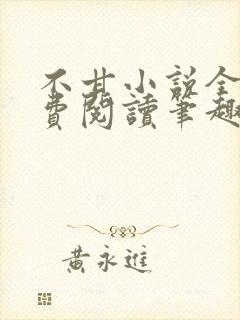 不甘小说全
費閱讀筆趣
黃永進